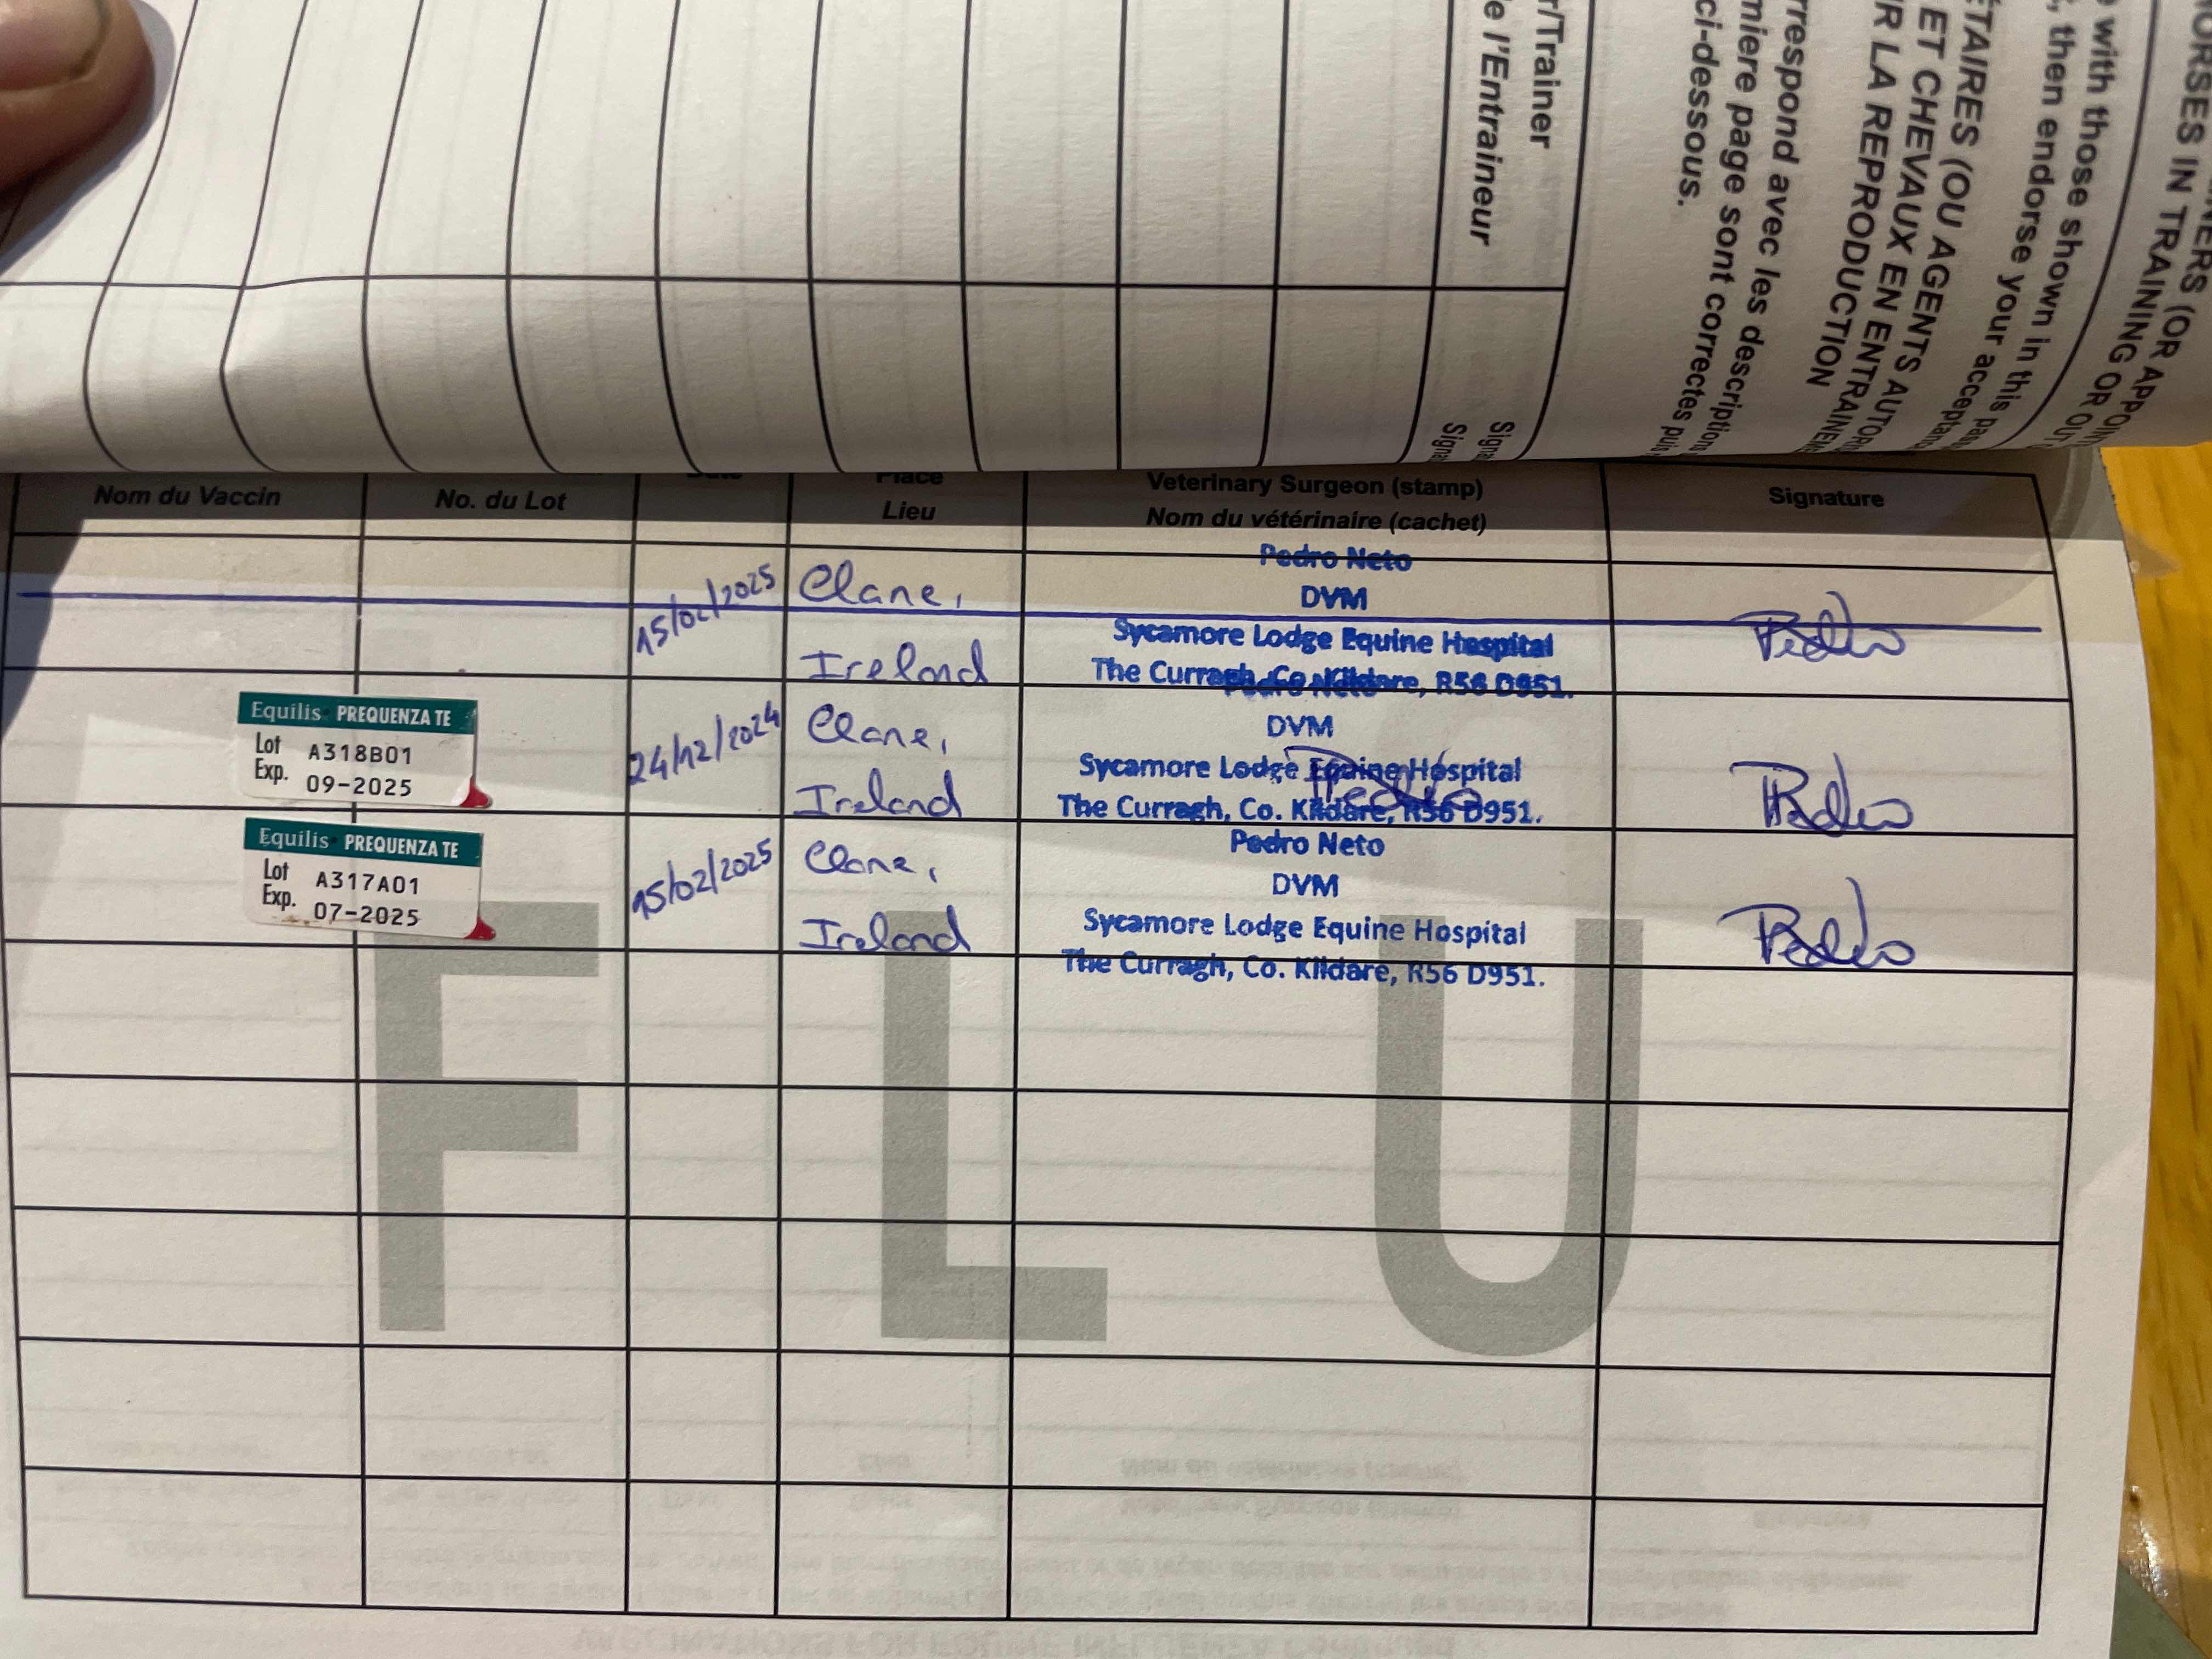 HORSES IN TRAINING OR OUT
with those shown in this
, then endorse your
ÉTAIRES (OU AGENTS
ET CHEVAUX EN
R LA REPRODUCTION
rrespond avec les
miere page sont correctes
ci-dessous.
r/Trainer
e l'Entraineur
Nom du Vaccin
No. du Lot
Place
Lieu
Veterinary Surgeon (stamp)
Nom du vétérinaire (cachet)
Signature
15/02/2025
Clane,
Ireland
Pedro Neto
DVM
Sycamore Lodge Equine Hospital
The Curragh, Co. Kildare, R56 D951.
Pedro
Equilis PREQUENZA TE
Lot A318B01
Exp. 09-2025
24/12/2024
Clane,
Ireland
Pedro Neto
DVM
Sycamore Lodge Equine Hospital
The Curragh, Co. Kildare, R56 D951.
Pedro
Pedro
Equilis PREQUENZA TE
Lot A317A01
Exp. 07-2025
15/02/2025
Clane,
Ireland
Pedro Neto
DVM
Sycamore Lodge Equine Hospital
The Curragh, Co. Kildare, R56 D951.
Pedro
FLU